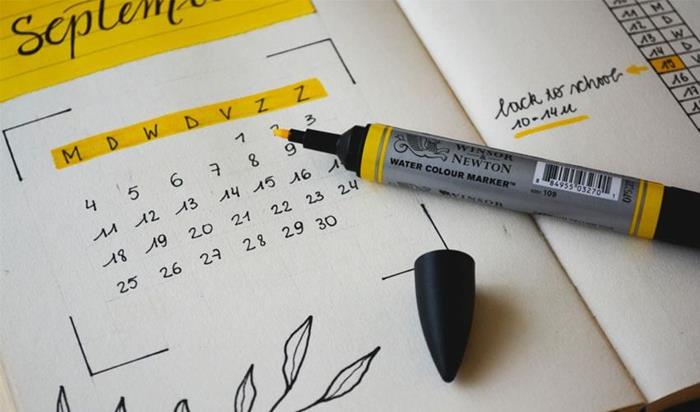 September
M D W D V Z Z
1 2 3
4 5 6 7 8 9
11 12 13 14 15 16
18 19 20 21 22 23 24
25 26 27 28 29 30
back to school
10-14u
WINSOR
& NEWTON
WATER COLOUR MARKER™
84955 03270
109
WINSOR
11 M
12 D
13 W
14 D
15
16
17